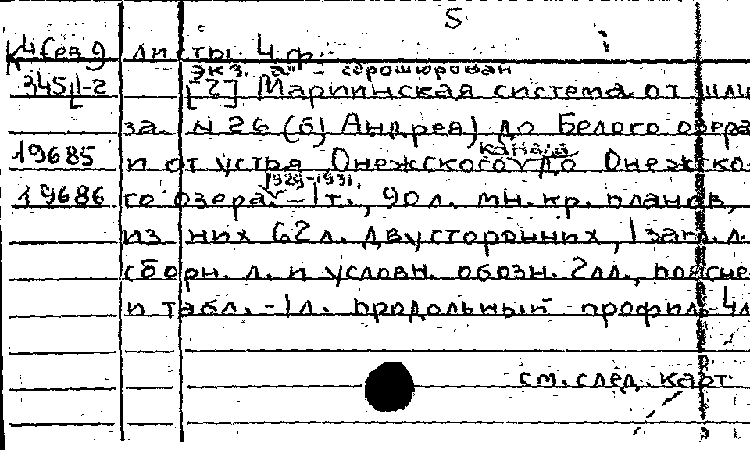 5
К4Сев 9 листы 4 ф.
экз. "а" - сброшюрован
345/1-2 [2] Мариинская система от шлю
за N 26 (б) Андрея) до Белого озера
канала
19685 и от устья Онежского до Онежско-
1929-1931.
19686 го озера - 1 т., 90 л. мн. кр. планов,
из них 62 л. двусторонних, 1 загл. л.
сборн. л. и условн. обозн. 2 лл., поясне
и табл. - 1 л. продольный профил. 4 л
см. след. карт